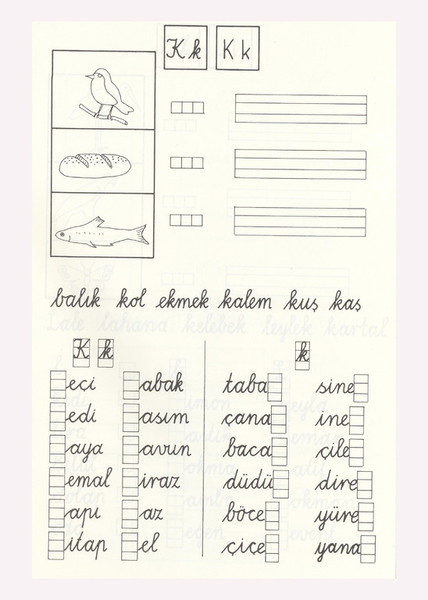 K k K k
balık kol ekmek kalem kuş kas
Lale lahana kelebek leylek kartal
K k k
eçi abak taba sine
edi asım çana ine
aya avun baca çile
emal iraz düdü dire
apı az böce yüre
itap el çiçe yana